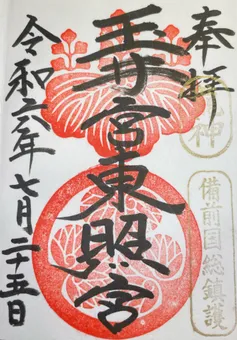 奉拝
備前国総鎮護
玉井宮東照宮
令和六年七月二十五日